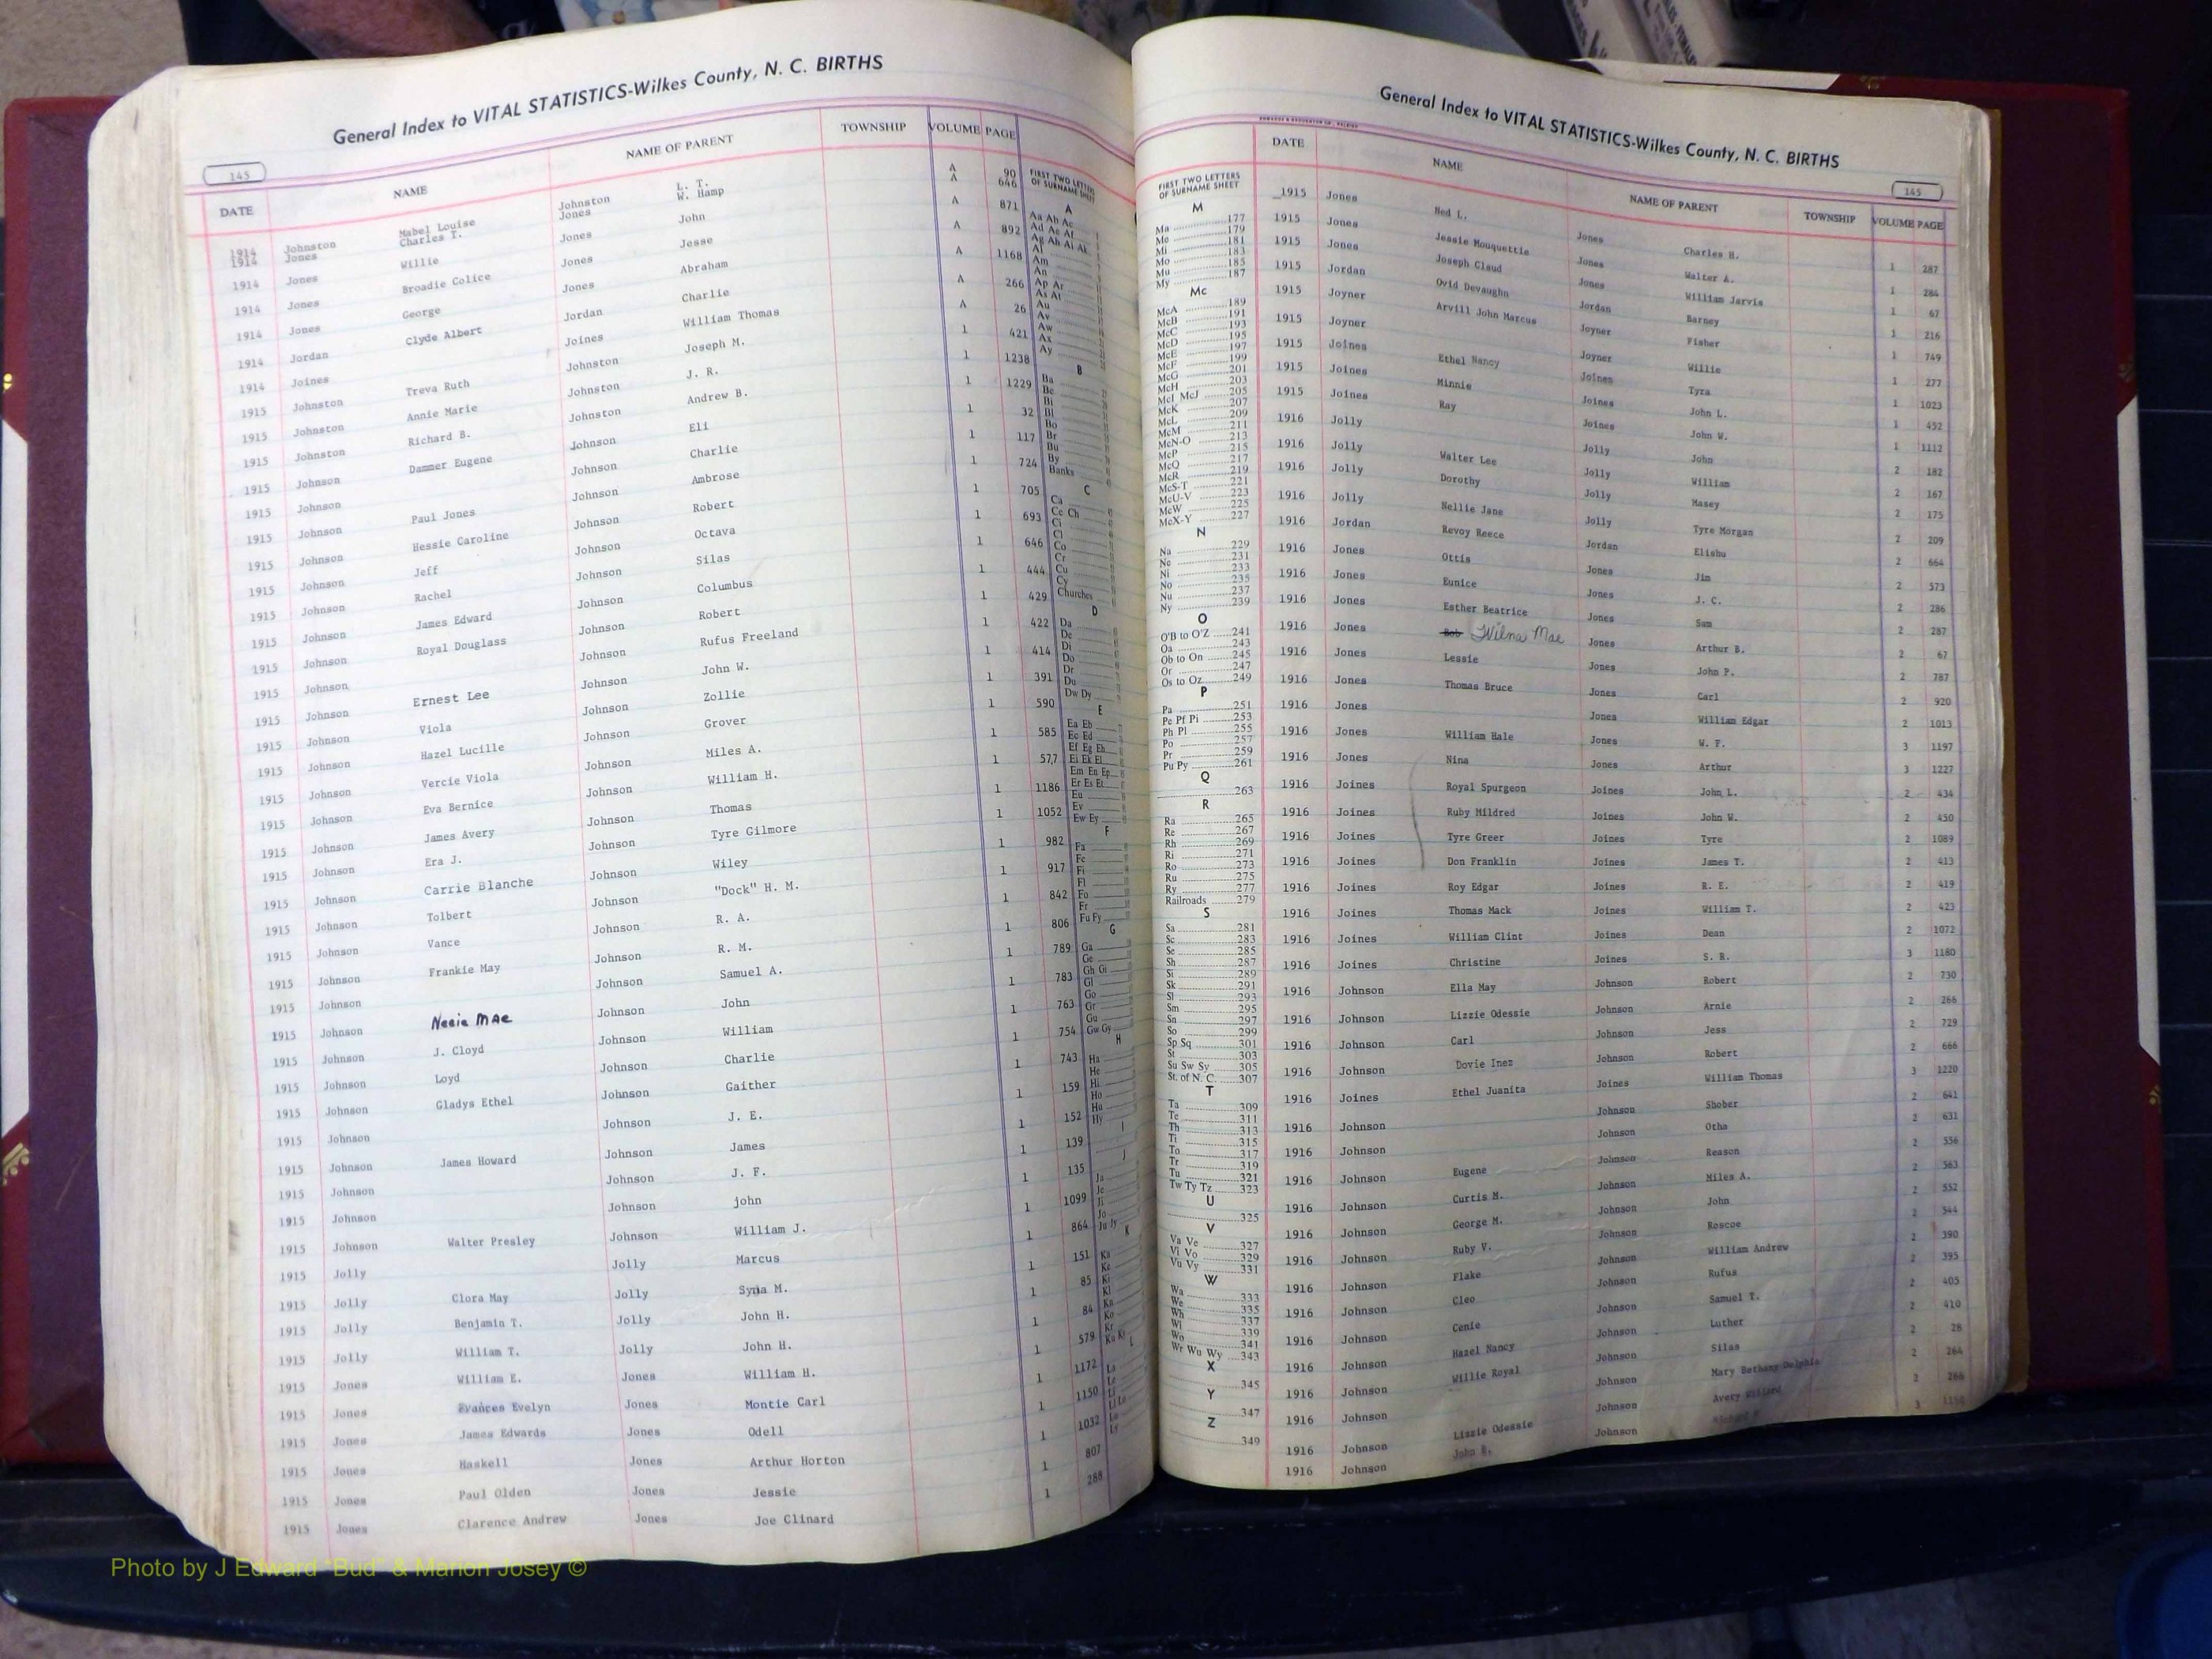 General Index to VITAL STATISTICS-Wilkes County, N. C. BIRTHS
145
DATE NAME NAME OF PARENT TOWNSHIP VOLUME PAGE
1914 Johnston Mabel Louise Johnston L. T. A 90
1914 Jones Charles T. Jones W. Hamp A 646
1914 Jones Willie Jones John A 871
1914 Jones Broadie Colice Jones Jesse A 892
1914 Jones George Jones Abraham A 1168
1914 Jordan Clyde Albert Jordan Charlie A 266
1914 Joines Joines William Thomas A 26
1915 Johnston Treva Ruth Johnston Joseph M. 1 421
1915 Johnston Annie Marie Johnston J. R. 1 1238
1915 Johnston Richard B. Johnston Andrew B. 1 1229
1915 Johnson Dammer Eugene Johnson Eli 1 32
1915 Johnson Johnson Charlie 1 117
1915 Johnson Paul Jones Johnson Ambrose 1 724
1915 Johnson Hessie Caroline Johnson Robert 1 705
1915 Johnson Jeff Johnson Octava 1 693
1915 Johnson Rachel Johnson Silas 1 646
1915 Johnson James Edward Johnson Columbus 1 444
1915 Johnson Royal Douglass Johnson Robert 1 429
1915 Johnson Johnson Rufus Freeland 1 422
1915 Johnson Ernest Lee Johnson John W. 1 414
1915 Johnson Viola Johnson Zollie 1 391
1915 Johnson Hazel Lucille Johnson Grover 1 590
1915 Johnson Vercie Viola Johnson Miles A. 1 585
1915 Johnson Eva Bernice Johnson William H. 1 577
1915 Johnson James Avery Johnson Thomas 1 1186
1915 Johnson Era J. Johnson Tyre Gilmore 1 1052
1915 Johnson Carrie Blanche Johnson Wiley 1 982
1915 Johnson Tolbert Johnson "Dock" H. M. 1 917
1915 Johnson Vance Johnson R. A. 1 842
1915 Johnson Frankie May Johnson R. M. 1 806
1915 Johnson Johnson Samuel A. 1 789
1915 Johnson Neeie Mae Johnson John 1 783
1915 Johnson J. Cloyd Johnson William 1 763
1915 Johnson Loyd Johnson Charlie 1 754
1915 Johnson Gladys Ethel Johnson Gaither 1 743
1915 Johnson Johnson J. E. 1 159
1915 Johnson James Howard Johnson James 1 152
1915 Johnson Johnson J. F. 1 139
1915 Johnson Johnson john 1 135
1915 Johnson Walter Presley Johnson William J. 1 1099
1915 Jolly Jolly Marcus 1 864
1915 Jolly Clora May Jolly Syna M. 1 151
1915 Jolly Benjamin T. Jolly John H. 1 85
1915 Jolly William T. Jolly John H. 1 84
1915 Jones William E. Jones William H. 1 579
1915 Jones Frances Evelyn Jones Montie Carl 1 1172
1915 Jones James Edwards Jones Odell 1 1150
1915 Jones Haskell Jones Arthur Horton 1 1032
1915 Jones Paul Olden Jones Jessie 1 807
1915 Jones Clarence Andrew Jones Joe Clinard 1 288
FIRST TWO LETTERS
OF SURNAME SHEET
A
Aa Ab Ac
Ad Ae Af
Ag Ah Ai Ak
Al
Am
An
Ap Ar
As At
Au
Av
Aw
Ax
Ay
B
Ba
Be
Bi
Bl
Bo
Br
Bu
By
Banks
C
Ca
Ce Ch
Ci
Cl
Co
Cr
Cu
Cy
Churches
D
Da
De
Di
Do
Dr
Du
Dw Dy
E
Ea Eb
Ec Ed
Ef Eg Eh
Ei Ek El
Em En Ep
Er Es Et
Eu
Ev
Ew Ey
F
Fa
Fe
Fi
Fl
Fo
Fr
Fu Fy
G
Ga
Ge
Gh Gi
Gl
Go
Gr
Gu
Gw Gy
H
Ha
He
Hi
Ho
Hu
Hy
I
J
Ja
Je
Ji
Jo
Ju Jy
K
Ka
Ke
Ki
Kl
Kn
Ko
Kr
Ku Ky
L
La
Le
Li
Ll Lo
Lu
Ly
General Index to VITAL STATISTICS-Wilkes County, N. C. BIRTHS
145
FIRST TWO LETTERS
OF SURNAME SHEET
M
Ma 177
Me 179
Mi 181
Mo 183
Mu 185
My 187
Mc
McA 189
McB 191
McC 193
McD 195
McE 197
McF 199
McG 201
McH 203
McI McJ 205
McK 207
McL 209
McM 211
McN-O 213
McP 215
McQ 217
McR 219
McS-T 221
McU-V 223
McW 225
McX-Y 227
N
Na 229
Ne 231
Ni 233
No 235
Nu 237
Ny 239
O
O'B to O'Z 241
Oa 243
Ob to On 245
Or 247
Os to Oz 249
P
Pa 251
Pe Pf Pi 253
Ph Pl 255
Po 257
Pr 259
Pu Py 261
Q
263
R
Ra 265
Re 267
Rh 269
Ri 271
Ro 273
Ru 275
Ry 277
Railroads 279
S
Sa 281
Sc 283
Se 285
Sh 287
Si 289
Sk 291
Sl 293
Sm 295
Sn 297
So 299
Sp Sq 301
St 303
Su Sw Sy 305
St. of N. C. 307
T
Ta 309
Te 311
Th 313
Ti 315
To 317
Tr 319
Tu 321
Tw Ty Tz 323
U
325
V
Va Ve 327
Vi Vo 329
Vu Vy 331
W
Wa 333
We 335
Wh 337
Wi 339
Wo 341
Wr Wu Wy 343
X
345
Y
347
Z
349
DATE NAME NAME OF PARENT TOWNSHIP VOLUME PAGE
1915 Jones Ned L. Jones Charles H. 1 287
1915 Jones Jessie Mouquettie Jones Walter A. 1 284
1915 Jones Joseph Claud Jones William Jarvis 1 67
1915 Jordan Ovid Devaughn Jordan Barney 1 216
1915 Joyner Arvill John Marcus Joyner Fisher 1 749
1915 Joyner Joyner Willie 1 277
1915 Joines Ethel Nancy Joines Tyra 1 1023
1915 Joines Minnie Joines John L. 1 452
1915 Joines Ray Joines John W. 1 1112
1916 Jolly Jolly John 2 182
1916 Jolly Walter Lee Jolly William 2 167
1916 Jolly Dorothy Jolly Masey 2 175
1916 Jolly Nellie Jane Jolly Tyre Morgan 2 209
1916 Jordan Revoy Reece Jordan Elishu 2 664
1916 Jones Ottis Jones Jim 2 573
1916 Jones Eunice Jones J. C. 2 286
1916 Jones Esther Beatrice Jones Sam 2 287
1916 Jones Bob Wilna Mae Jones Arthur B. 2 67
1916 Jones Lessie Jones John P. 2 787
1916 Jones Thomas Bruce Jones Carl 2 920
1916 Jones Jones William Edgar 2 1013
1916 Jones William Hale Jones W. F. 3 1197
1916 Jones Nina Jones Arthur 3 1227
1916 Joines Royal Spurgeon Joines John L. 2 434
1916 Joines Ruby Mildred Joines John W. 2 450
1916 Joines Tyre Greer Joines Tyre 2 1089
1916 Joines Don Franklin Joines James T. 2 413
1916 Joines Roy Edgar Joines R. E. 2 419
1916 Joines Thomas Mack Joines William T. 2 423
1916 Joines William Clint Joines Dean 2 1072
1916 Joines Christine Joines S. R. 3 1180
1916 Johnson Ella May Johnson Robert 2 730
1916 Johnson Lizzie Odessie Johnson Arnie 2 266
1916 Johnson Carl Johnson Jess 2 729
1916 Johnson Dovie Inez Johnson Robert 2 666
1916 Joines Ethel Juanita Joines William Thomas 3 1220
1916 Johnson Johnson Shober 2 641
1916 Johnson Johnson Otha 2 631
1916 Johnson Eugene Johnson Reason 2 556
1916 Johnson Curtis M. Johnson Miles A. 2 563
1916 Johnson George M. Johnson John 2 552
1916 Johnson Ruby V. Johnson Roscoe 2 544
1916 Johnson Flake Johnson William Andrew 2 390
1916 Johnson Cleo Johnson Rufus 2 395
1916 Johnson Cenie Johnson Samuel T. 2 405
1916 Johnson Hazel Nancy Johnson Luther 2 410
1916 Johnson Willie Royal Johnson Silas 2 28
1916 Johnson Johnson Mary Bethany Delphia 2 264
1916 Johnson Lizzie Odessie Johnson Avery Willard 2 266
1916 Johnson John B. Johnson 3
Photo by J Edward "Bud" & Marion Josey ©